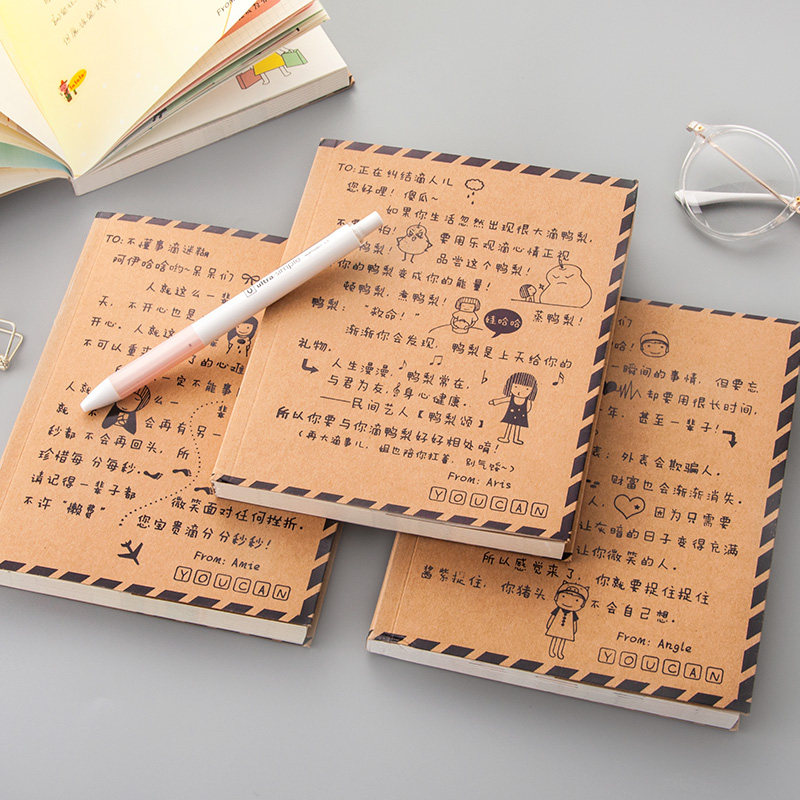 From
TO:不懂事滴迷糊
阿伊哈哈哟~呆呆们
人就这么一
天，不开心也是
开心。人就这
不可以重 了的心难
人 一定不能事
就 么一 辈
会再有另一
秒都 不会再回头，所
珍惜每分每秒.
请记得一辈子都
不许“懒费” 微笑面对任何挫折。
您宝贵滴分分秒秒！
From: Amie
YOUCAN
TO:正在纠结滴人儿
您好哩！傻瓜~
如果你生活忽然出现很大滴鸭梨，
不要 怕！ 要用乐观滴心情正视
鸭梨！ 品尝这个鸭梨！
你的鸭梨变成你的能量！
顿鸭梨，煮鸭梨！ 蒸鸭梨！
鸭梨：“救命！” 哇哈哈
渐渐你会发现，鸭梨是上天给你的
礼物。
人生漫漫， 鸭梨常在，
与君为友，身心健康。
——民间艺人【鸭梨颂】
所以你要与你滴鸭梨好好相处唷！
（再大滴事儿，姐也陪你扛着，别气馁~）
From: Arts
YOUCAN
们
哈！
瞬间的事情，但要忘
却要用很长时间，
年，甚至一辈子！
：外表会欺骗人。
财富也会渐渐消失。
，因为只需要
让灰暗的日子变得充满
让你微笑的人。
所以感觉来了，你就要捉住捉住
酱紫捉住，你猪头 不会自己想。
From: Angle
YOUCAN
ultra simple